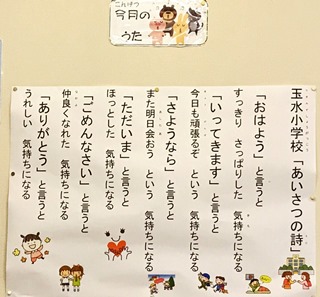 こんげつ
今月の
うた
玉水小学校「あいさつの詩」
「おはよう」と言うと
すっきり さっぱりした 気持ちになる
「いってきます」と言うと
今日も頑張るぞ という 気持ちになる
「さようなら」と言うと
また明日会おう という 気持ちになる
「ただいま」と言うと
ほっとした 気持ちになる
「ごめんなさい」と言うと
仲良くなれた 気持ちになる
「ありがとう」と言うと
うれしい 気持ちになる